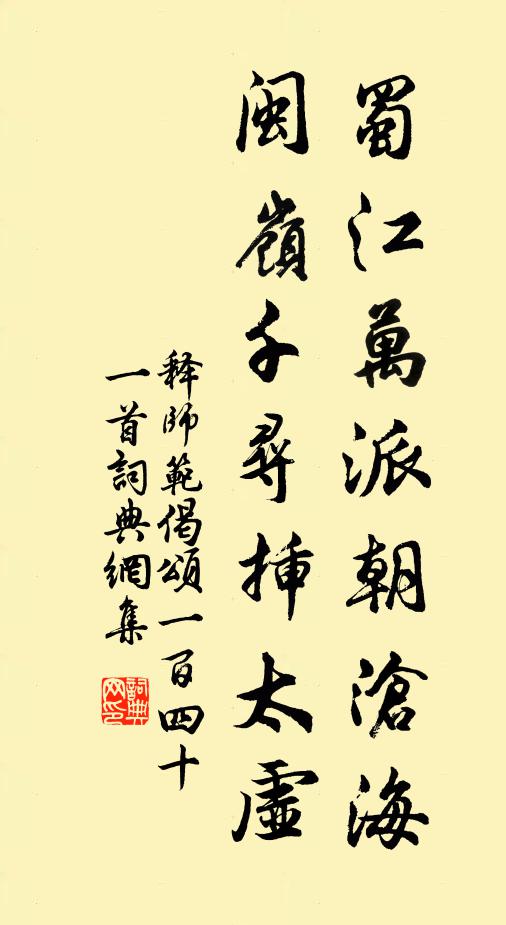 蜀江萬派朝滄海
閩嶺千尋挿太虛
释師範偈頌一百四十
一首詞典網集
詞典网印